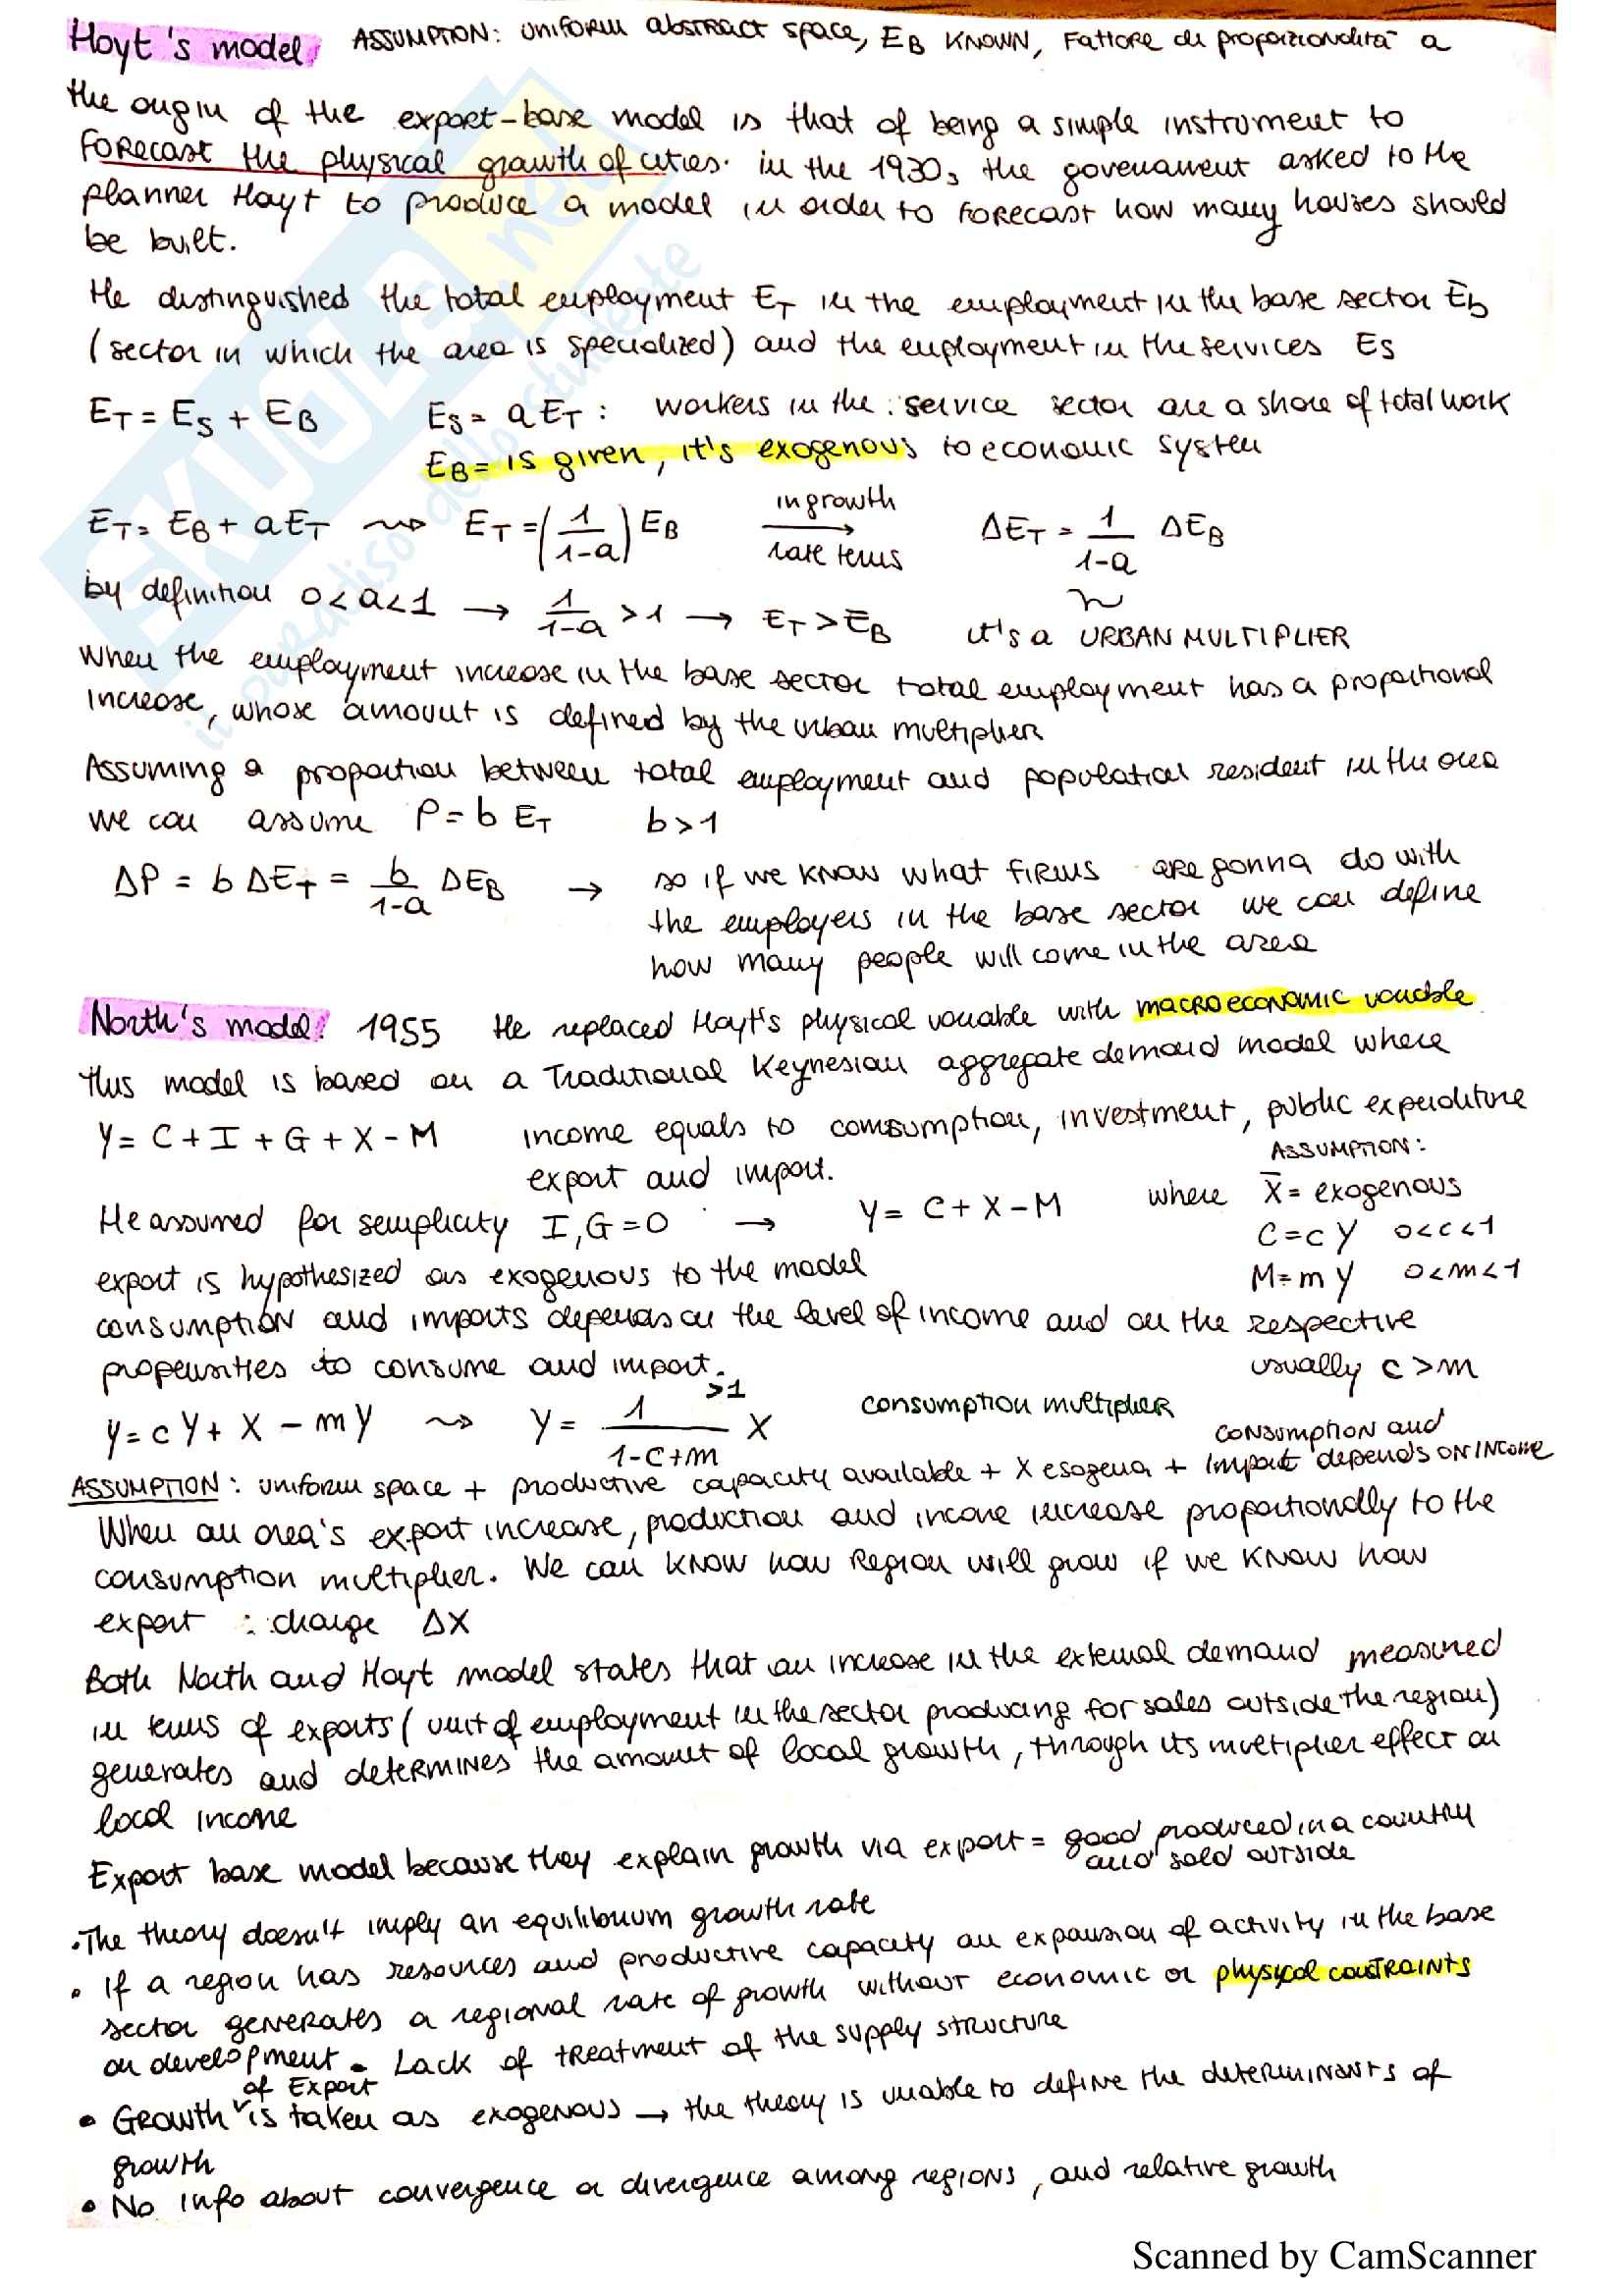 Hoyt's model: ASSUMPTION: uniform abstract space, EB KNOWN, Fattore di proporzionalità a
the origin of the export-base model is that of being a simple instrument to
Forecast the physical growth of cities. in the 1930s the government asked to the
planner Hoyt to produce a model in order to forecast how many houses should
be built.
He distinguished the total employment ET in the employment in the base sector EB
(sector in which the area is specialized) and the employment in the services ES
ET = ES + EB ES = a ET : workers in the service sector are a share of total work
EB = is given, it's exogenous to economic system
ET = EB + a ET ⇝ ET = (1/(1-a)) EB in growth rate terms → ΔET = 1/(1-a) ΔEB
by definition 0<a<1 → 1/(1-a) >1 → ET > EB it's a URBAN MULTIPLIER
When the employment increase in the base sector total employment has a proportional
increase, whose amount is defined by the urban multiplier
Assuming a proportion between total employment and population resident in the area
we can assume P = b ET b>1
ΔP = b ΔET = b/(1-a) ΔEB → so if we know what firms are gonna do with
the employers in the base sector we can define
how many people will come in the area
North's model: 1955 He replaced Hoyt's physical variable with macroeconomic variable
this model is based on a Traditional Keynesian aggregate demand model where
Y = C + I + G + X - M income equals to comsumption, investment, public expenditure
export and import.
ASSUMPTION:
He assumed for semplicity I, G = 0 → Y = C + X - M where X̄ = exogenous
C = c Y 0<c<1
export is hypothesized as exogenous to the model M = m Y 0<m<1
consumption and imports depends on the level of income and on the respective
propensities to consume and import. usually c > m
Y = cY + X - mY ⇝ Y = 1/(1-c+m) X >1 consumption multiplier
ASSUMPTION: uniform space + productive capacity available + X esogena + consumption and import depends on income
When an area's export increase, production and income increase proportionally to the
consumption multiplier. We can know how region will grow if we know how
export change ΔX
Both North and Hoyt model states that an increase in the external demand measured
in terms of exports (unit of employment in the sector producing for sales outside the region)
generates and determines the amount of local growth, through its multiplier effect on
local income
Export base model because they explain growth via export = good produced in a country
and sold outside
• The theory doesn't imply an equilibrium growth rate
• If a region has resources and productive capacity an expansion of activity in the base
sector generates a regional rate of growth without economic or physical constraints
on development. Lack of treatment of the supply structure
• Growth of Export is taken as exogenous → the theory is unable to define the determinants of
growth
• No info about convergence or divergence among regions, and relative growth
SKUOLA.net
il paradiso dello studente
Scanned by CamScanner